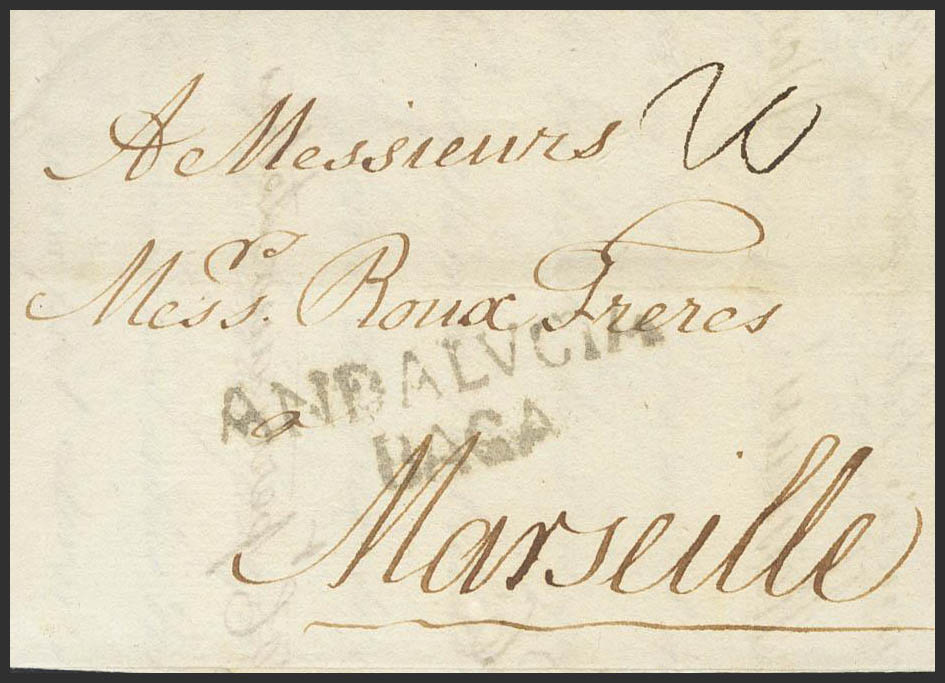 A Messieurs
Mess.rs Roux Freres
ANDALVCIA
à
Marseille